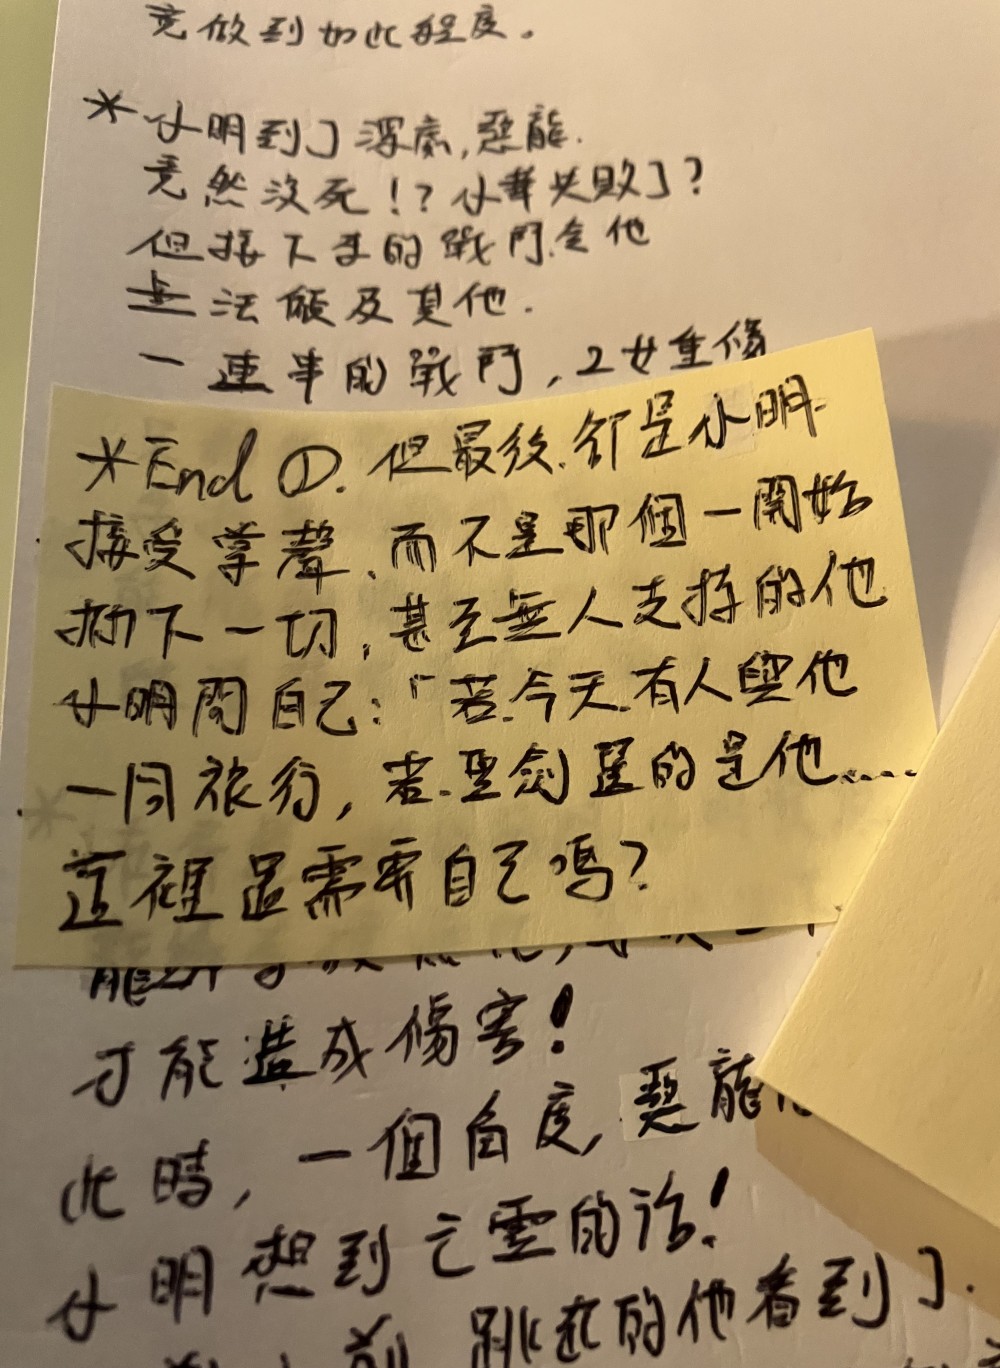 竟做到如此程度。
*小明到了深處,惡龍.
竟然沒死!?小華失敗了?
但接下來的戰鬥.令他
無法顧及其他.
一連串的戰鬥,2女重傷
*End ①.但最後.卻是小明.
接受掌聲,而不是那個一開始
拋下一切,甚至無人支持的他
小明問自己:「若.今天.有人與他
一同旅行,若.聖劍選的是他....
這裡還需要自己嗎?
才能造成傷害!
此時,一個角度,惡龍
小明想到亡靈的話!
跳起的他看到了.